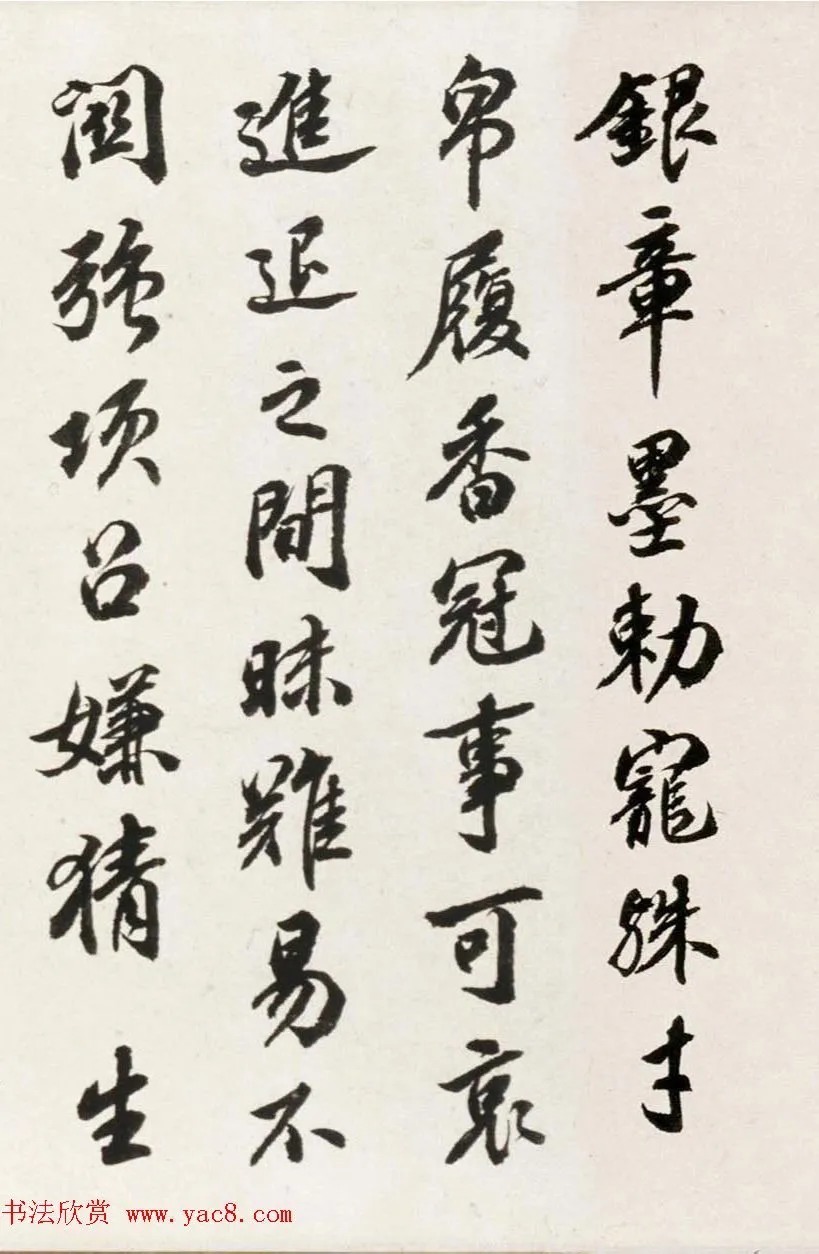 銀章墨勅寵殊才
帛履香冠事可哀
進退之間昧難易不
關強項召嫌猜 生
书法欣赏 www.yac8.com